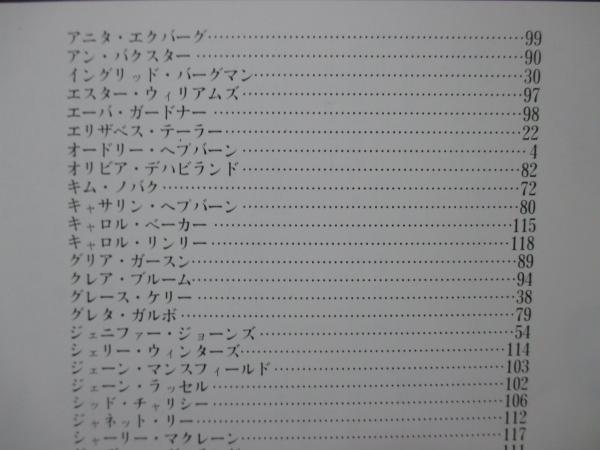 アニタ・エクバーグ……………………………………99
アン・バクスター……………………………………90
イングリッド・バーグマン……………………………………30
エスター・ウィリアムズ……………………………………97
エーバ・ガードナー……………………………………98
エリザベス・テーラー……………………………………22
オードリー・ヘプバーン……………………………………4
オリビア・デハビランド……………………………………82
キム・ノバク……………………………………72
キャサリン・ヘプバーン……………………………………80
キャロル・ベーカー……………………………………115
キャロル・リンリー……………………………………118
グリア・ガースン……………………………………89
クレア・ブルーム……………………………………94
グレース・ケリー……………………………………38
グレタ・ガルボ……………………………………79
ジェニファー・ジョーンズ……………………………………54
シェリー・ウィンタース……………………………………114
ジェーン・マンスフィールド……………………………………103
ジェーン・ラッセル……………………………………102
シッド・チャリシー……………………………………106
ジャネット・リー……………………………………112
シャーリー・マクレーン……………………………………117